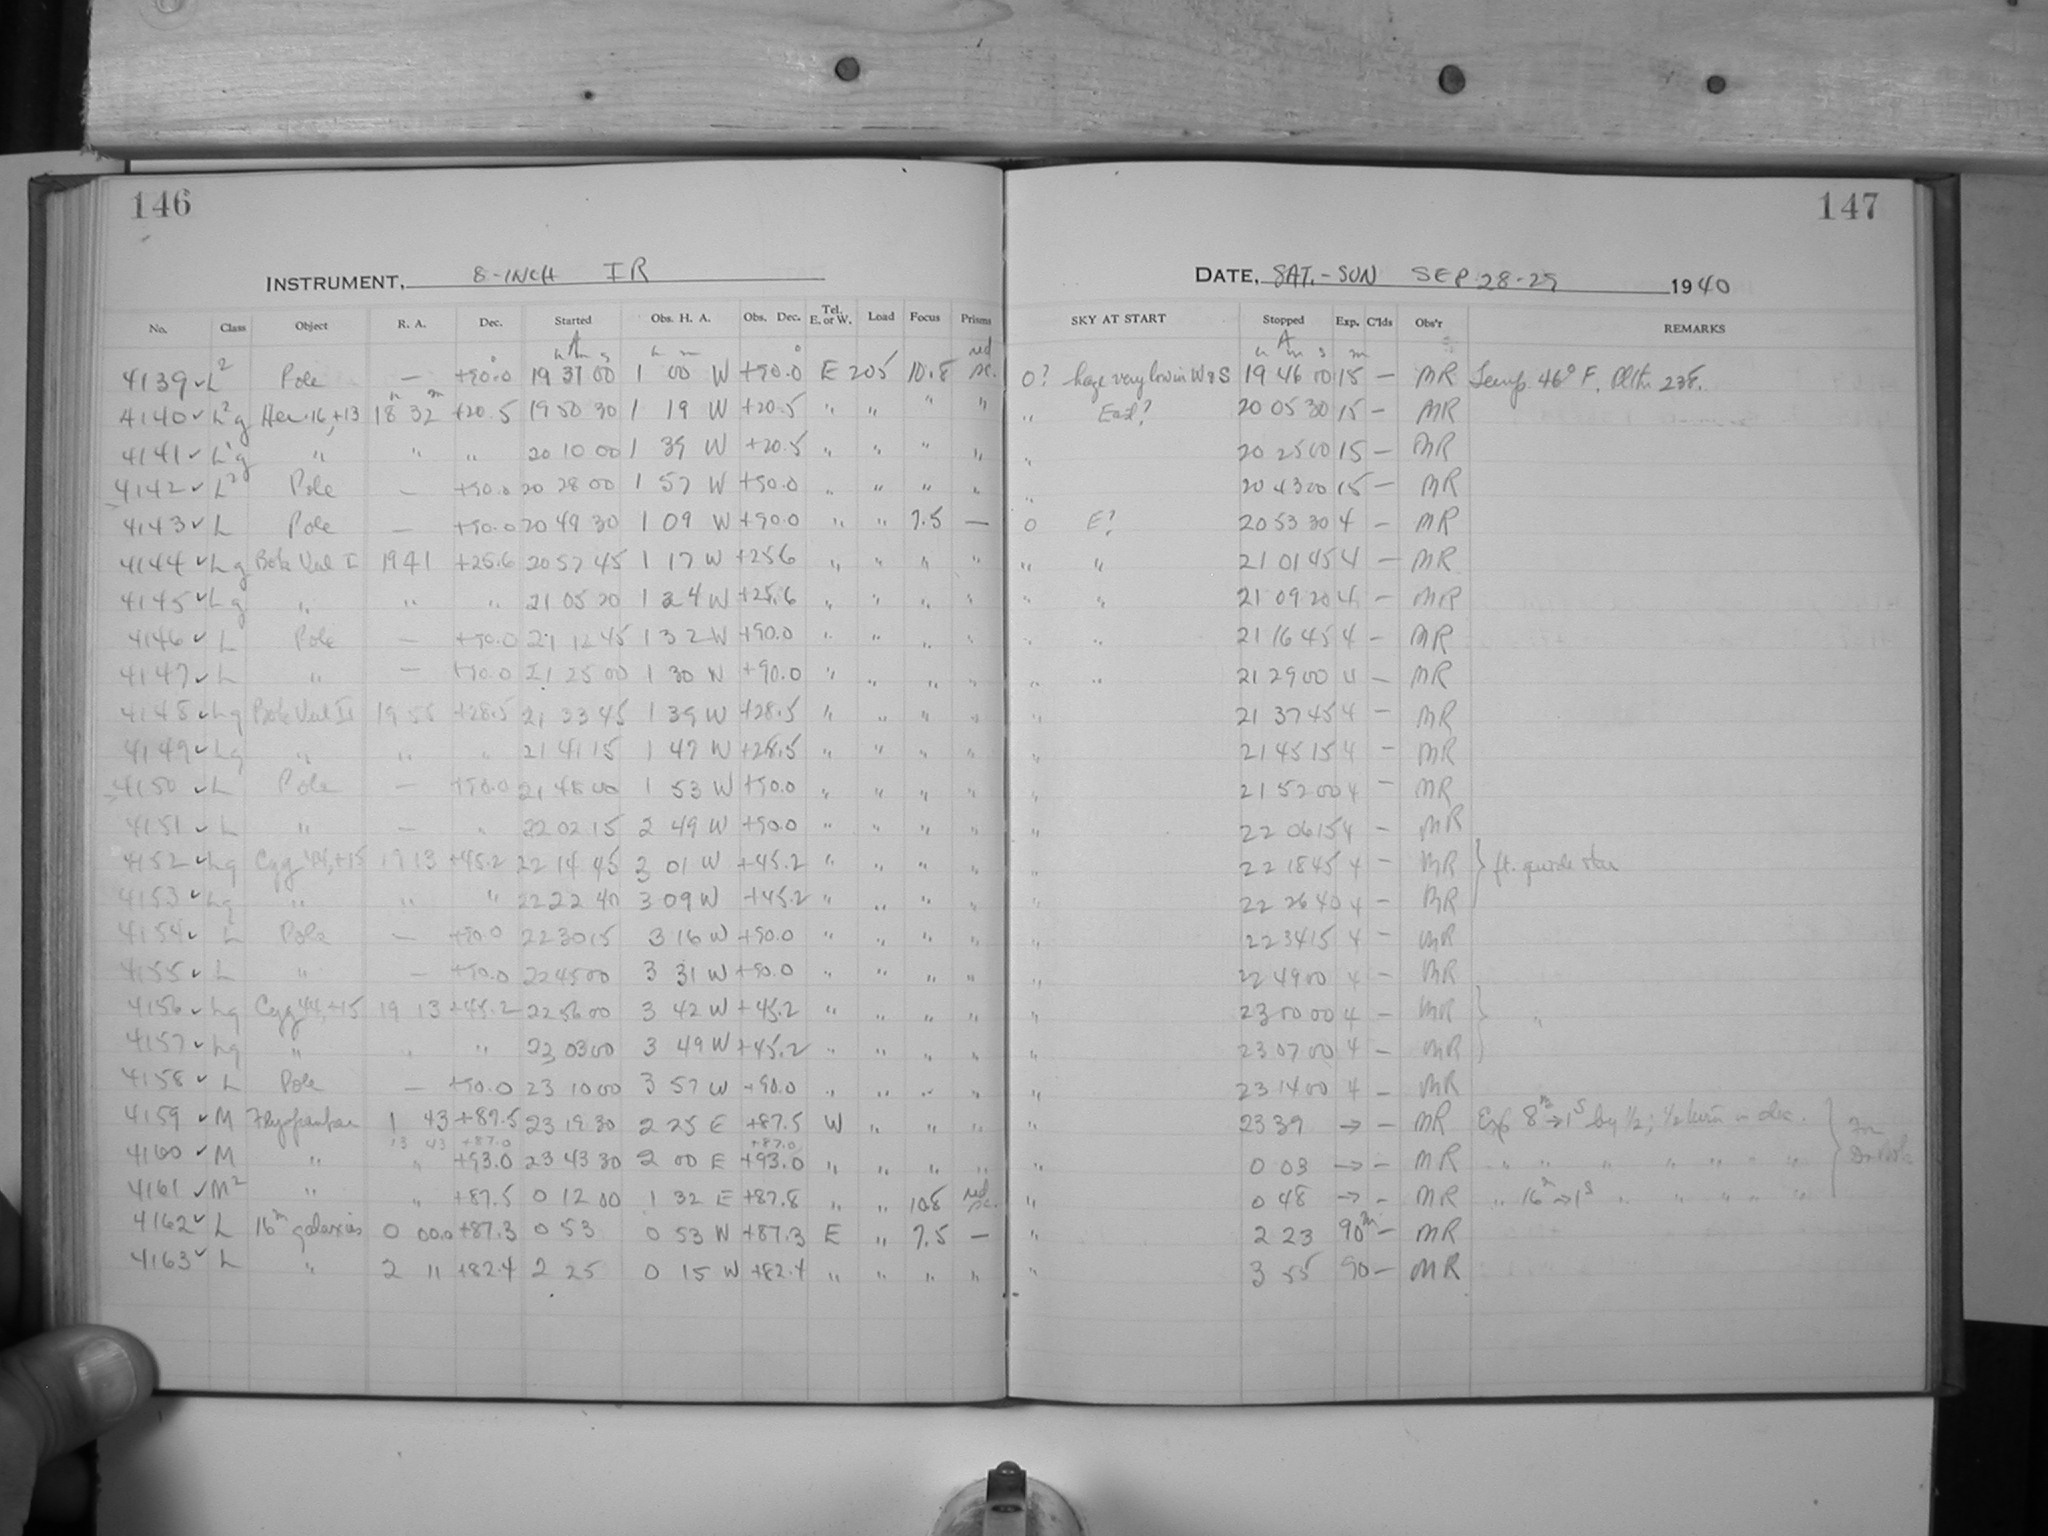 146
INSTRUMENT, 8-INCH IR
No. Class Object R. A. Dec. Started Obs. H. A. Obs. Dec. Tel. E. or W. Load Focus Prisms
4139 ✓ L² Pole — +90.0 19 31 00 1 00 W +90.0 E 205 10.8 red sc.
4140 ✓ L²g Her 16,+13 18 32 +20.5 19 50 30 1 19 W +20.5 " " " "
4141 ✓ L²g " " " 20 10 00 1 39 W +20.5 " " " "
4142 ✓ L² Pole — +90.0 20 28 00 1 57 W +90.0 " " " "
4143 ✓ L Pole — +90.0 20 49 30 1 09 W +90.0 " " 7.5 —
4144 ✓ Lg Bok Vul I 19 41 +25.6 20 57 45 1 17 W +25.6 " " " "
4145 ✓ Lg " " " 21 05 20 1 24 W +25.6 " " " "
4146 ✓ L Pole — +90.0 21 12 45 1 32 W +90.0 " " " "
4147 ✓ L " — +90.0 21 25 00 1 30 W +90.0 " " " "
4148 ✓ Lg Bok Vul II 19 56 +28.5 21 33 45 1 39 W +28.5 " " " "
4149 ✓ Lg " " " 21 41 15 1 47 W +28.5 " " " "
4150 ✓ L Pole — +90.0 21 48 00 1 53 W +90.0 " " " "
4151 ✓ L " — " 22 02 15 2 49 W +90.0 " " " "
4152 ✓ Lg Cyg 44,+15 19 13 +45.2 22 14 45 3 01 W +45.2 " " " "
4153 ✓ Lg " " " 22 22 40 3 09 W +45.2 " " " "
4154 ✓ L Pole — +90.0 22 30 15 3 16 W +90.0 " " " "
4155 ✓ L " — +90.0 22 45 00 3 31 W +90.0 " " " "
4156 ✓ Lg Cyg 44,+15 19 13 +45.2 22 56 00 3 42 W +45.2 " " " "
4157 ✓ Lg " " " 23 03 00 3 49 W +45.2 " " " "
4158 ✓ L Pole — +90.0 23 10 00 3 57 W +90.0 " " " "
4159 ✓ M 1 43 +87.5 23 19 30 2 25 E +87.5 W " " "
13 43 +87.0 +87.0
4160 ✓ M " " +93.0 23 43 30 2 00 E +93.0 " " " "
4161 ✓ M² " " +87.5 0 12 00 1 32 E +87.8 " " 10.8 red sc.
4162 ✓ L 16ᵐ galaxies 0 00.0 +87.3 0 53 0 53 W +87.3 E " 7.5 —
4163 ✓ L " 2 11 +82.4 2 25 0 15 W +82.4 " " " "
147
DATE, SAT.-SUN SEP 28-29 1940
SKY AT START Stopped Exp. C'lds Obs'r REMARKS
0? haze very low in W & S 19 46 00 15 — MR Temp. 46° F.
" East? 20 05 30 15 — MR
" 20 25 00 15 — MR
" 20 43 00 15 — MR
0 E? 20 53 30 4 — MR
" " 21 01 45 4 — MR
" " 21 09 20 4 — MR
" " 21 16 45 4 — MR
" " 21 29 00 4 — MR
" 21 37 45 4 — MR
" 21 45 15 4 — MR
" 21 52 00 4 — MR
" 22 06 15 4 — MR
" 22 18 45 4 — MR } ft. guide star
" 22 26 40 4 — MR
" 22 34 15 4 — MR
" 22 49 00 4 — MR
" 23 00 00 4 — MR } "
" 23 07 00 4 — MR
" 23 14 00 4 — MR
" 23 39 → — MR Exp 8ᵐ→1ˢ by 1/2; 1/2 turn in dec.
" 0 03 → — MR " " " " " " "
" 0 48 → — MR " 16ᵐ→1ˢ " " " " "
" 2 23 90ᵐ — MR
" 3 55 90 — MR